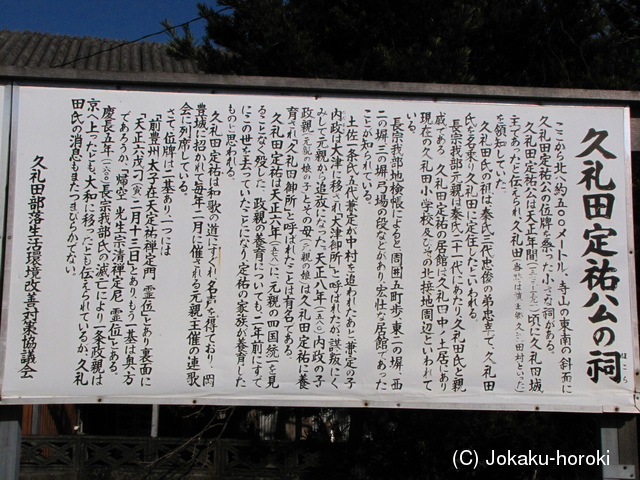 久礼田定祐公の祠
ほこら
ここから北へ約五〇〇メートル、寺山の東南の斜面に
久礼田定祐公の位牌を祭った小さな祠がある。
久礼田定祐公は天正年間
頃に久礼田城
主であったと伝えられ、久礼田
を領知していた。
久礼田氏の祖は秦氏三代忠俊の弟忠幸で、久礼田
氏を名乗り久礼田に定住したといわれる。
長宗我部元親は秦氏二十一代にあたり、久礼田氏と親
戚である。久礼田定祐の居館は久礼田中ノ土居にあり
現在の久礼田小学校及びその北接地周辺といわれて
いる。
長宗我部地検帳によると、周囲五町歩、東二の塀、西
二の塀、三の塀、弓場の段などがあり、宏壮な居館であった
ことが知られている。
土佐一条氏五代兼定が中村を追われたあと、兼定の子
内政は大津に移され「大津御所」と呼ばれたが、謀叛にく
みして元親から追放になった。天正八年(一五八〇)内政の子
政親(元親の娘の子)とその母(元親の娘)は久礼田定祐に養
育され「久礼田御所」と呼ばれたことは有名である。
久礼田定祐は天正六年(一五七八)に元親の四国統一を見
ることなく歿した。政親の養育についても二年前にすで
にこの世を去っていたことになり、定祐の家族が養育した
ものと思われる。
久礼田定祐は和歌の道にすぐれ名声を得ており、岡
豊城に招かれて毎年二月に催される元親主催の連歌
会に列席している。
さて位牌は二基あり、一つには
「前豊州太守在天定祐禅定門 霊位」とあり、裏面に
「天正六戊刁(寅)二月十三日」とあり、もう一基は奥方
であろうか、「帰空 光生宗清禅定尼 霊位」とある。
慶長五年(一六〇〇)長宗我部氏の滅亡により一条政親は
京へ上ったとも、大和に移ったとも伝えられているが、久礼
田氏の消息もまたつまびらかでない。
久礼田部落生活環境改善対策協議会
(C) Jokaku-horoki